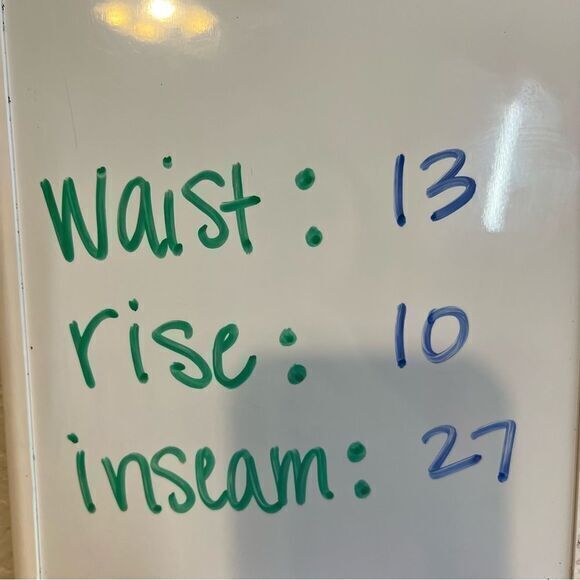 waist: 13
rise: 10
inseam: 27